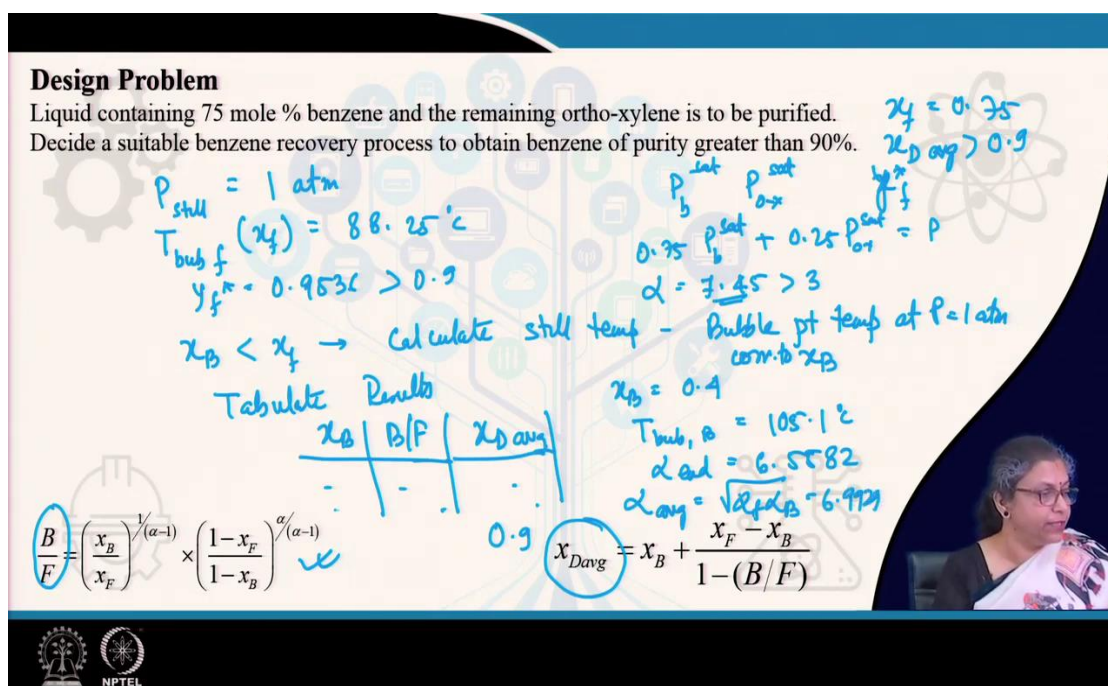 Design Problem
Liquid containing 75 mole % benzene and the remaining ortho-xylene is to be purified.
Decide a suitable benzene recovery process to obtain benzene of purity greater than 90%.
x_f = 0.75
x_D avg > 0.9
P_still = 1 atm
P_b^sat P_o-x^sat y_f^*
T_bub f (x_f) = 88.25°C
0.75 P_b^sat + 0.25 P_ox^sat = P
y_f^* = 0.9536 > 0.9
α = 7.45 > 3
x_B < x_f → Calculate still temp - Bubble pt temp at P = 1 atm
corr. to x_B
Tabulate Results
x_B = 0.4
x_B | B/F | x_D avg
T_bub, B = 105.1°C
α_end = 6.5582
α_avg = √α_f α_B = 6.9929
0.9
B/F = (x_B/x_F)^1/(α-1) × (1-x_F/1-x_B)^α/(α-1)
x_Davg = x_B + x_F - x_B/1-(B/F)
NPTEL